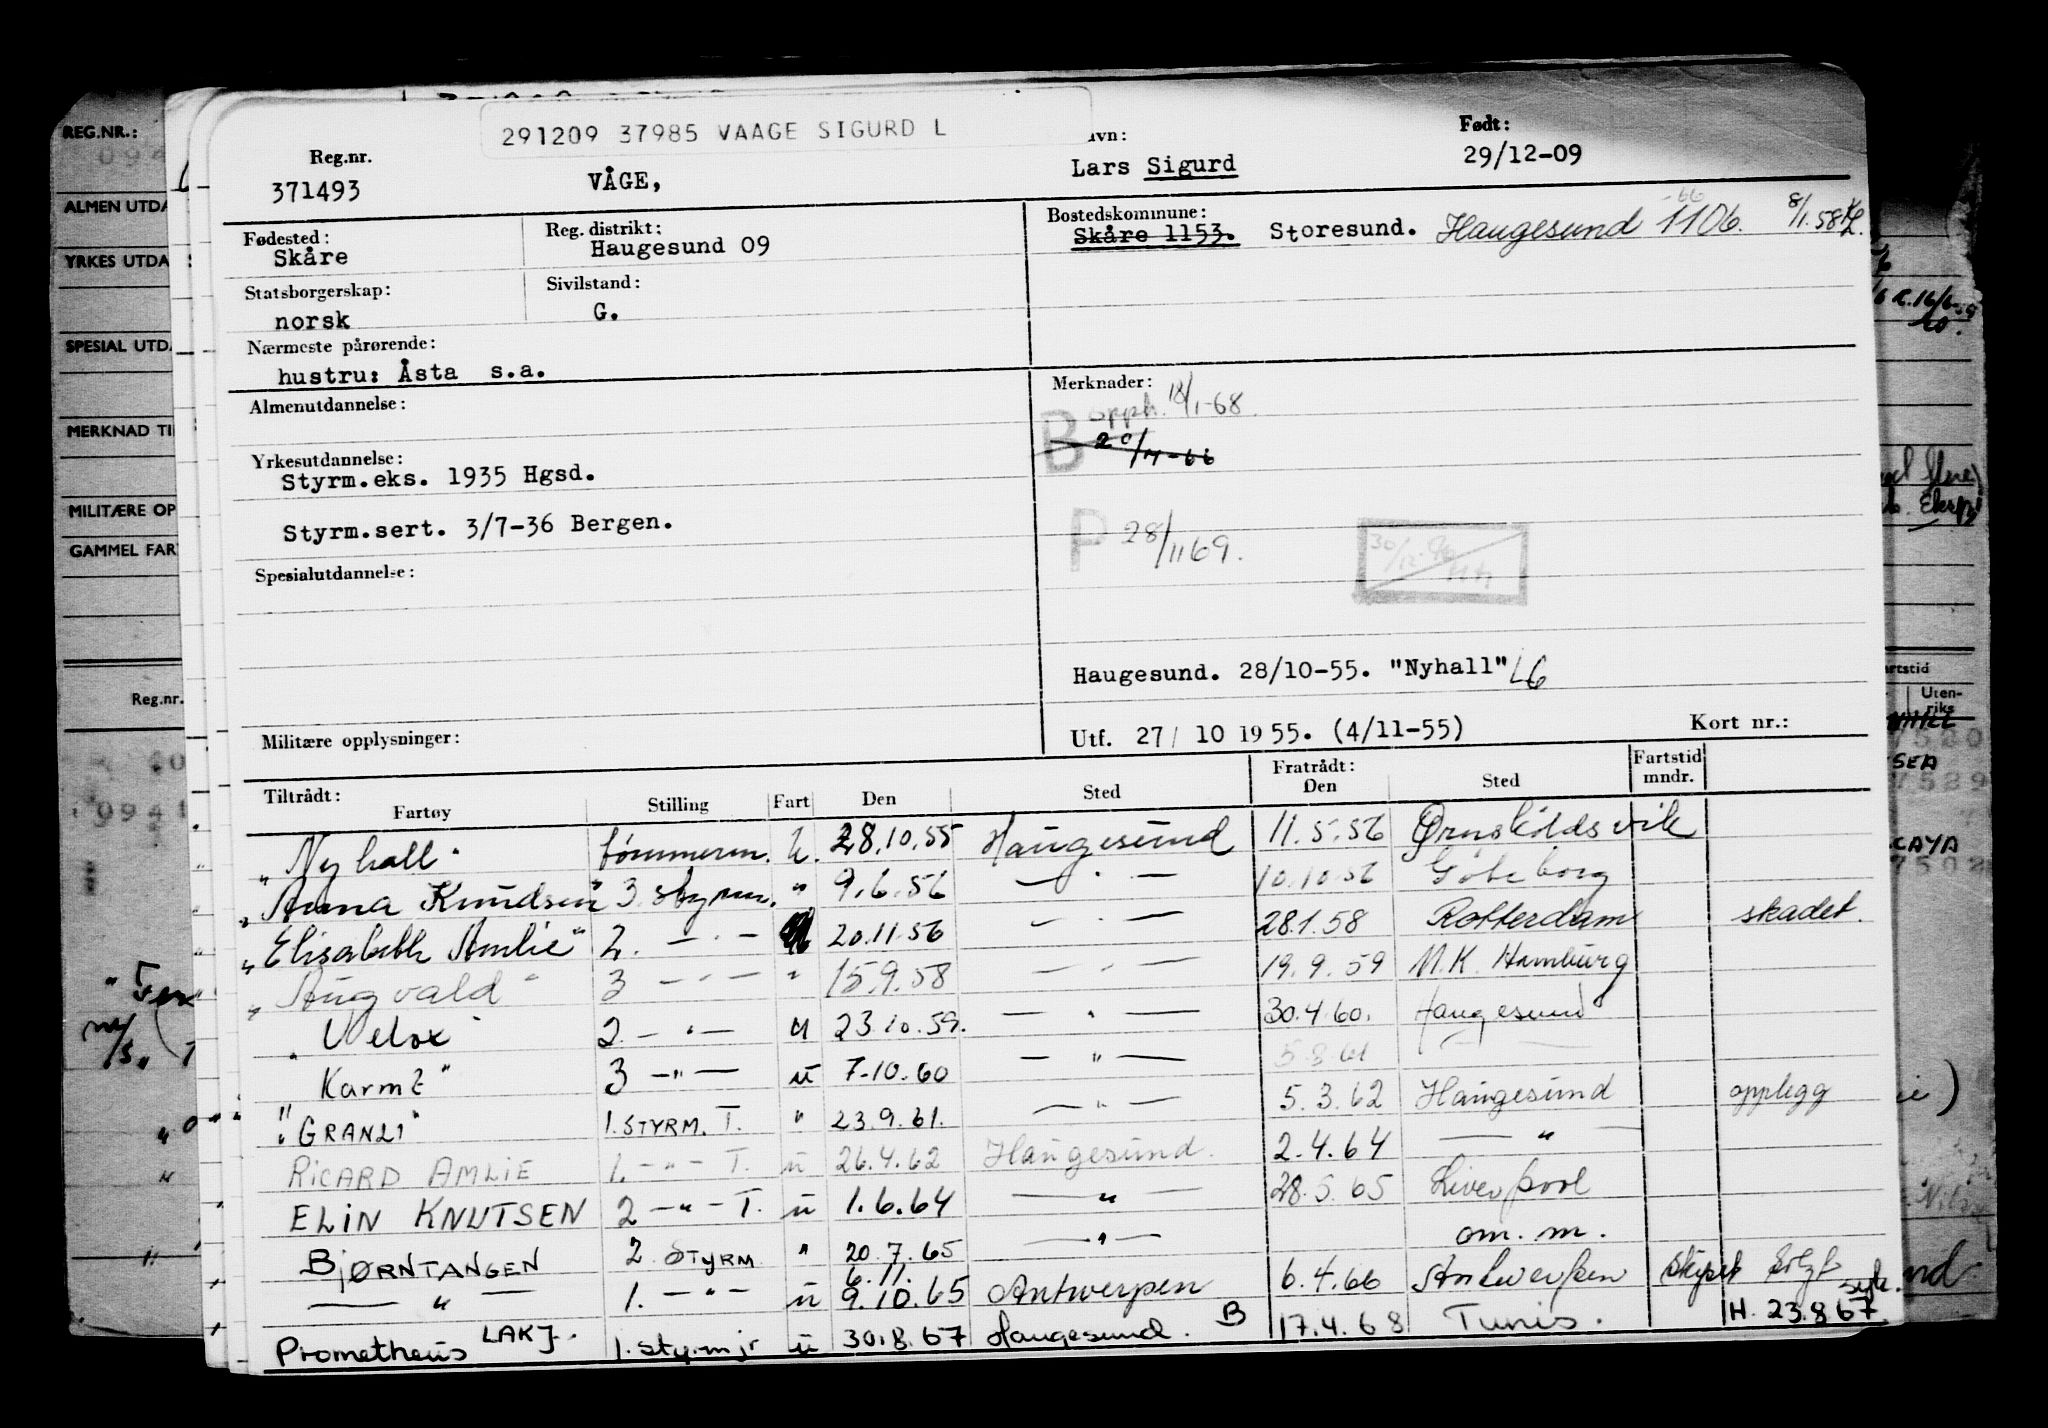 291209 37985 VAAGE SIGURD L
Reg.nr. Født:
371493 VÅGE, Lars Sigurd 29/12-09
Fødested: Reg. distrikt: Bostedskommune:
Skåre Haugesund 09 Skåre 1153. Storesund. Haugesund 1106. 8/1.58
Statsborgerskap: Sivilstand:
norsk G.
Nærmeste pårørende:
hustru: Åsta s.a.
Almenutdannelse:
Yrkesutdannelse:
Styrm.eks. 1935 Hgsd.
Styrm.sert. 3/7-36 Bergen.
Spesialutdannelse:
Militære opplysninger:
Merknader:
B opph. 18/1-68.
P 28/11 69.
Haugesund. 28/10-55. "Nyhall" L6
Utf. 27/ 10 1955. (4/11-55) Kort nr.:
Tiltrådt: Fratrådt: Fartstid
Fartøy Stilling Fart Den Sted Den Sted mndr.
"Nyhall" tømmerm. U. 28.10.55 Haugesund 11.5.56 Ørnsköldsvik
"Anna Knudsen" 3 styrm. " 9.6.56 — " — 10.10.56 Göteborg
"Elisabeth Amlie" 2. — " — 20.11.56 — " — 28.1.58 Rotterdam skadet.
"Augvald" 3 — " — " 15.9.58 — " — 19.9.59 N.K. Hamburg
"Velox" 2. — " — u 23.10.59. — " — 30.4.60. Haugesund
Karmt" 3 — " — u 7.10.60 — " — 5.8.61 — —
"GRANLI" 1. STYRM. T. " 23.9.61. — " — 5.3.62 Haugesund opplegg
RICARD AMLIE 1. — " — T. u 26.4.62 Haugesund. 2.4.64 — " —
ELIN KNUTSEN 2 — " — T. u 1.6.64 — " — 28.5.65 Liverpool
BJØRNTANGEN 2. STYRM " 20.7.65 — " — om. m.
— " — 1. — " — u 6.11. 9.10.65 Antwerpen 6.4.66 Antwerpen Skipet solgt
Prometheus LAKJ. 1. styrm jr u 30.8.67 Haugesund. B 17.4.68 Tunis. H. 23.8.67 syk.
REG.NR.:
ALMEN UTDA
YRKES UTDA
SPESIAL UTDA
MERKNAD TI
MILITÆRE OP
GAMMEL FAR
Reg.nr.
Uten-
riks
SEA
CAYA